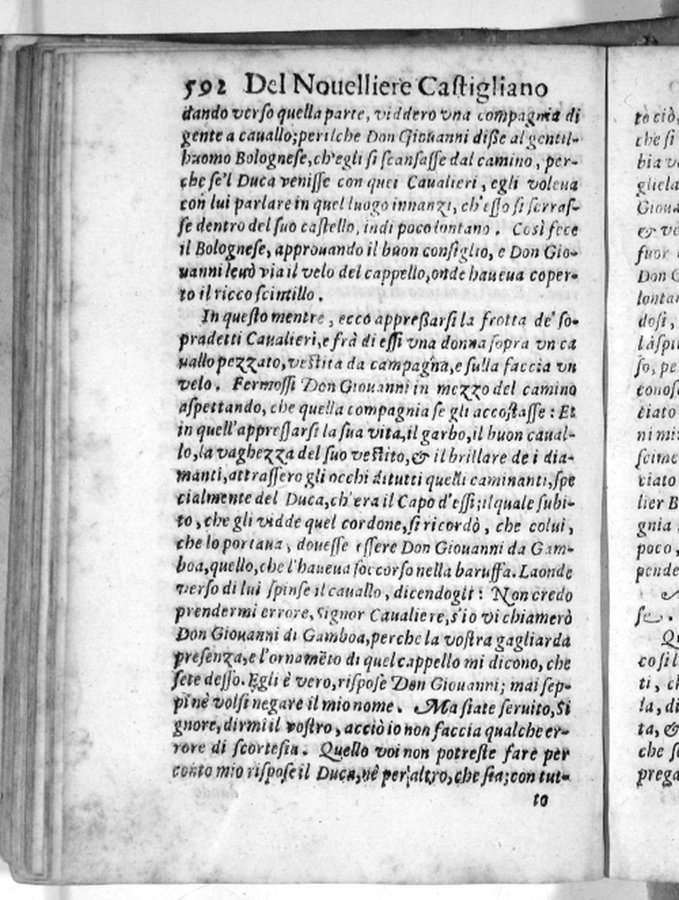 592 Del Nouelliere Castigliano
dando verso quella parte, viddero vna compagnia di
gente a cauallo; perilche Don Giouanni disse al gentil-
huomo Bolognese, ch'egli si scansasse dal camino, per-
che se'l Duca venisse con quei Caualieri, egli voleua
con lui parlare in quel luogo innanzi, ch'esso si serras-
se dentro del suo castello, indi poco lontano. Così fece
il Bolognese, approuando il buon consiglio, e Don Gio-
uanni leuò via il velo del cappello, onde haueua coper-
to il ricco scintillo.
In questo mentre, ecco appreßarsi la frotta de' so-
pradetti Caualieri, e frà di essi vna donna sopra vn ca
uallo pezzato, vestita da campagna, e sulla faccia vn
velo. Fermossi Don Giouanni in mezzo del camino
aspettando, che quella compagnia se gli accostasse: Et
in quell'appressarsi la sua vita, il garbo, il buon caual-
lo, la vaghezza del suo vestito, & il brillare de i dia-
manti, attrassero gli occhi di tutti quelli caminanti, spe
cialmente del Duca, ch'era il Capo d'essi; il quale subi-
to, che gli vidde quel cordone, si ricordò, che colui,
che lo portaua, douesse essere Don Giouanni da Gam-
boa, quello, che l'haueua soccorso nella baruffa. Laonde
verso di lui spinse il cauallo, dicendogli: Non credo
prendermi errore, Signor Caualiere, s'io vi chiamerò
Don Giouanni di Gamboa, perche la vostra gagliarda
presenza, e l'ornamẽto di quel cappello mi dicono, che
sete desso. Egli è vero, rispose Don Giouanni; mai sep-
pi nè volsi negare il mio nome. Ma siate seruito, Si
gnore, dirmi il vostro, acciò io non faccia qualche er-
rore di scortesia. Quello voi non potreste fare per
conto mio rispose il Duca, nè per altro, che sia; con tut-
to
to ciò,
che si
bia v
gliela
Gioua
& ve
fuor
Don G
lontan
dosi,
là spi
so, pe
conosc
ciato
ni mi
scime
ciato
lier B
gnia
poco,
pende
se.
Qu
co si l
ti, ch
la, di
ta, &
che se
prega